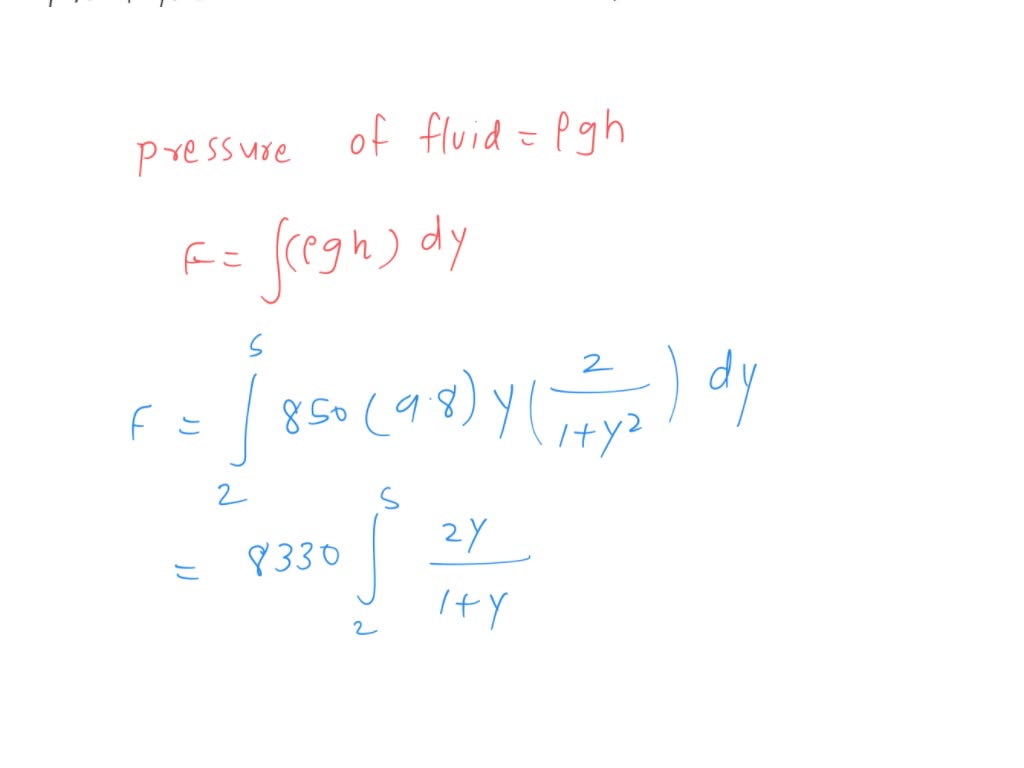 pressure of fluid = ρgh
F = ∫(ρgh) dy
F = ∫₂⁵ 850(9.8) y (2/(1+y²)) dy
= 8330 ∫₂⁵ 2y/(1+y)